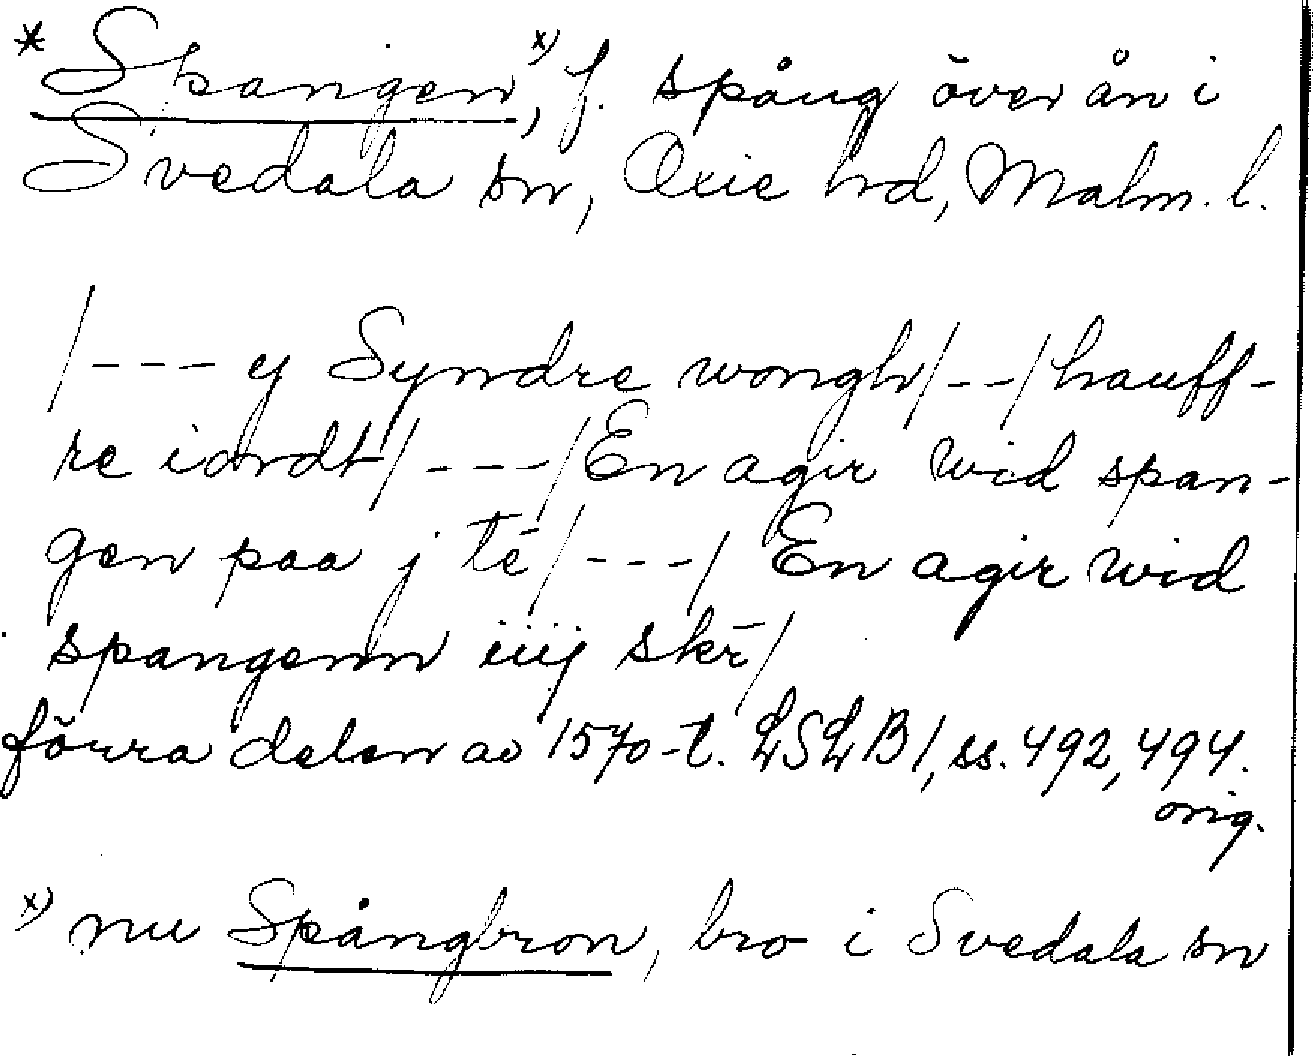 * Spangen,ˣ⁾ f. spång över ån i
Svedala sn, Oxie hd, Malm. l.
/--- y Syndre wongh/--/hauff-
re iordt/---/En agir wid span-
gen paa j té/---/ En agir wid
spangenn iiij skr̄/
förra delen av 1570-t. LSLB1, ss. 492, 494.
orig.
ˣ⁾ nu Spångbron, bro i Svedala sn